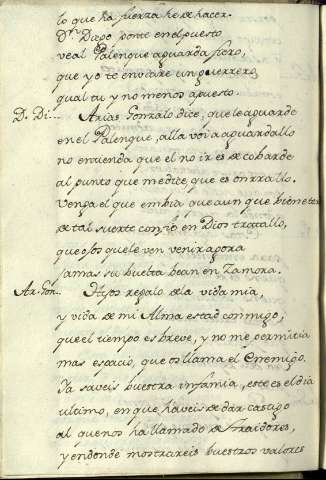 lo que ha fuerza he de hacer.
Dn. Diego ponte en el puesto
ve al Palenque aguarda fiero,
que yo te enviare un guerrero
qual tu y no menos apuesto.
D. Di... Arias Gonzalo dice, que le aguarde
en el Palenque, alla voi a aguardallo
no entienda que el no ir es de cobarde
al punto que me dice, que es
Venga el que embia que aun que bien
de tal suerte confio en Dios tratallo,
que ojos que le ven venir agora
jamas su buelta bean en Zamora.
Ar. Gon... Hijos regalo de la vida mia,
y vida de mi Alma estad conmigo;
que el tiempo es breve, y no me permitia
mas espacio, que os llama el Enemigo.
Ya saveis buestra infamia, este es el dia
ultimo, en que haveis de dar castigo
al que nos ha llamado de Traidores,
y en donde mostrareis buestros valores